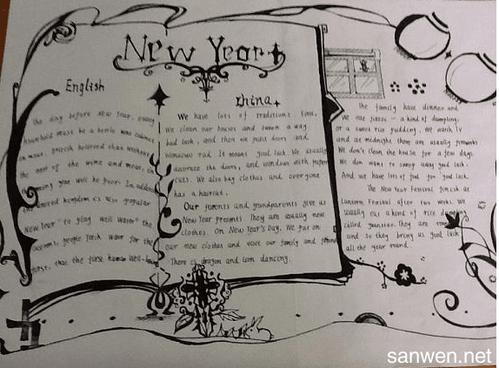 New Year
English
The day before New Year, every
household must be a bottle wine cabinet
meat. British believed that without
the rest of the wine and meat, the
coming year will be poor. In addition,
United Kingdom is also popular
New Year "to play well water" the
people fetch water for the
first, that the first
China
We have lots of traditions time.
We clean our houses and sweep away
bad luck, and then we paint doors and
windows red. It means good luck. We usually
decorate the doors and windows with paper
cuts. We also buy clothes and everyone
has a haircut.
Our parents and grandparents give us
New Year presents. They are usually new
clothes. On New Year's Day. We put on
our new clothes and visit our family and
There is dragon and lion dancing.
The family have dinner and
We eat jiaozi — a kind of dumpling,
or a sweet rice pudding. We watch TV
and at midnight there are usually fireworks
We don't clean the house for a few days.
We don want to sweep away good luck.
And we have lots of food for good luck.
The New Year Festival finish at
Lantern Festival after two weeks. We
usually eat a kind of rice
called yuanxiao. They are
and so they bring us good luck
all the year round.
sanwen.net